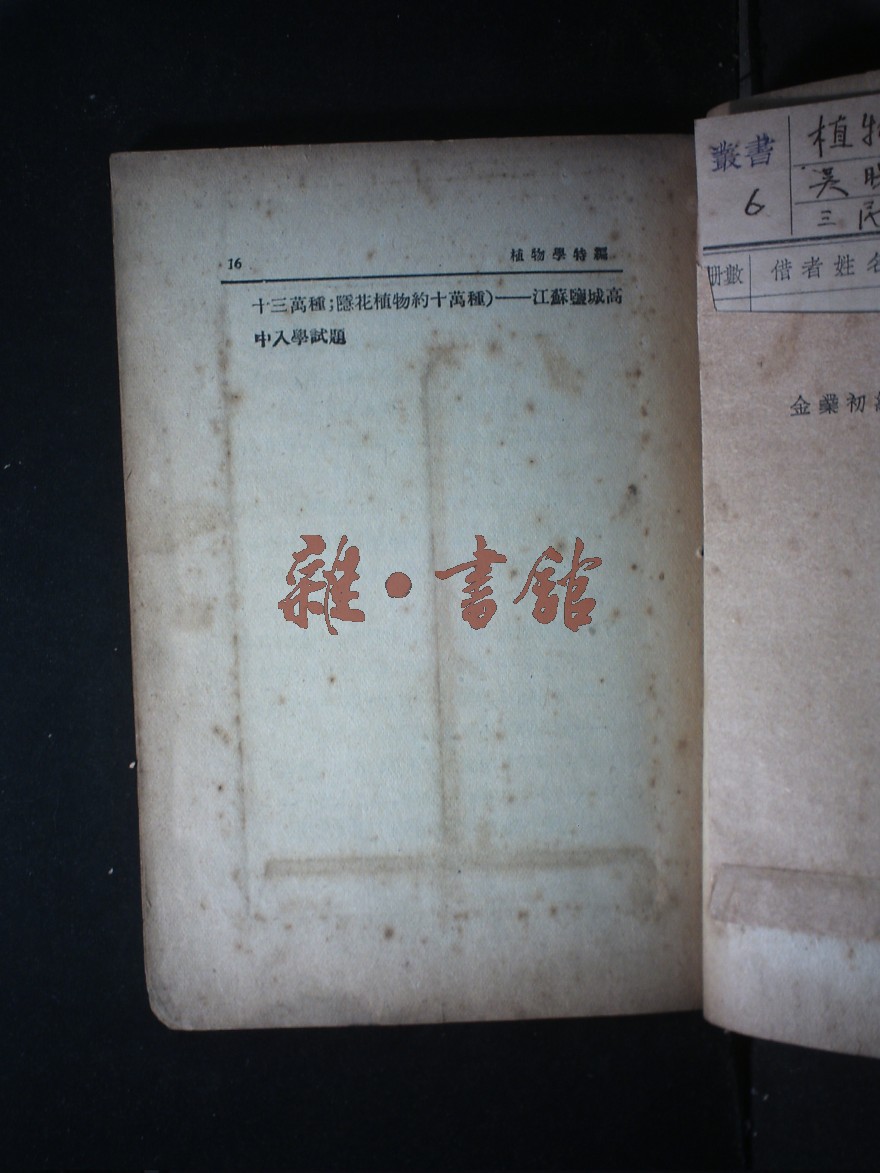 16
植物學特編
十三萬種;隱花植物約十萬種)——江蘇鹽城高
中入學試題
雜·書館
叢書
6
植物
吳
三民
册數
借者姓名
金業初